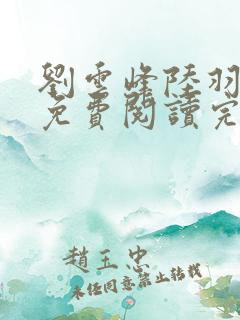 劉雲峰陸羽
免費閱讀完
趙玉忠
未經同意禁止轉載